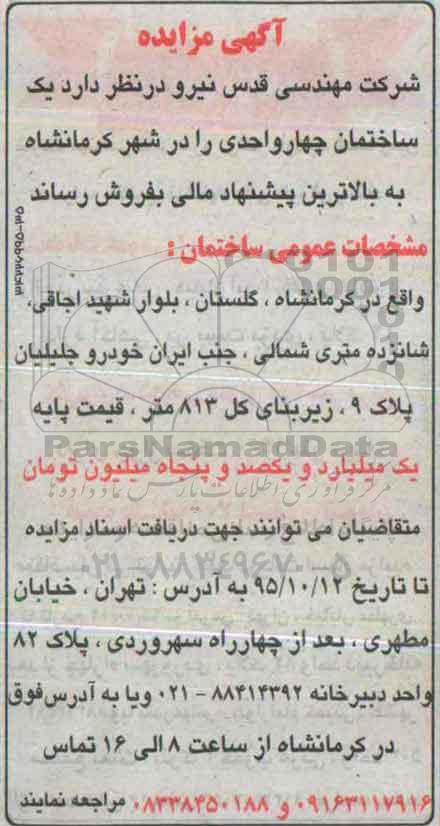 آگهی مزایده
شرکت مهندسی قدس نیرو درنظر دارد یک
ساختمان چهارواحدی را در شهر کرمانشاه
به بالاترین پیشنهاد مالی بفروش رساند
مشخصات عمومی ساختمان :
واقع در کرمانشاه ، گلستان ، بلوار شهید اجاقی،
شانزده متری شمالی ، جنب ایران خودرو جلیلیان
پلاک ۹ ، زیربنای کل ۸۱۳ متر ، قیمت پایه
ParsNamadData
یک میلیارد و یکصد و پنجاه میلیون تومان
متقاضیان می توانند جهت دریافت اسناد مزایده
تا تاریخ ۹۵/۱۰/۱۲ به آدرس : تهران ، خیابان
مطهری ، بعد از چهارراه سهروردی ، پلاک ۸۲
واحد دبیرخانه ۸۸۴۱۴۳۹۲ - ۰۲۱ ویا به آدرس فوق
در کرمانشاه از ساعت ۸ الی ۱۶ تماس
۰۹۱۶۳۱۱۷۹۱۶ و ۰۸۳۳۸۴۵۰۱۸۸ مراجعه نمایند